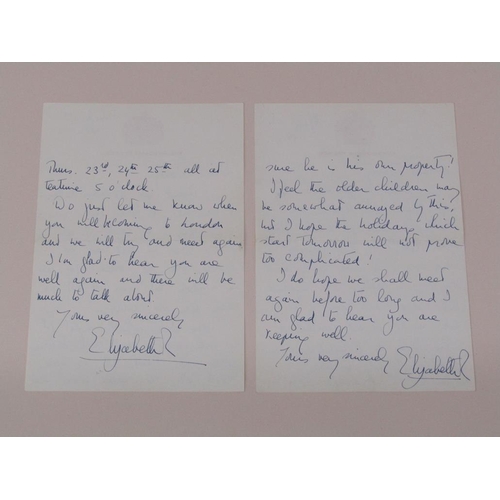 Thurs. 23rd, 24th 25th all at
teatime 5 o'clock
Do just let me know when
you will be coming to London
and we will try and meet again
I am glad to hear you are
well again and there will be
much to talk about
Yours very sincerely
Elizabeth R
sure he is his own property!
I feel the older children may
be somewhat annoyed by this,
but I hope the holidays, which
start tomorrow will not prove
too complicated!
I do hope we shall meet
again before too long and I
am glad to hear you are
keeping well.
Yours very sincerely Elizabeth R